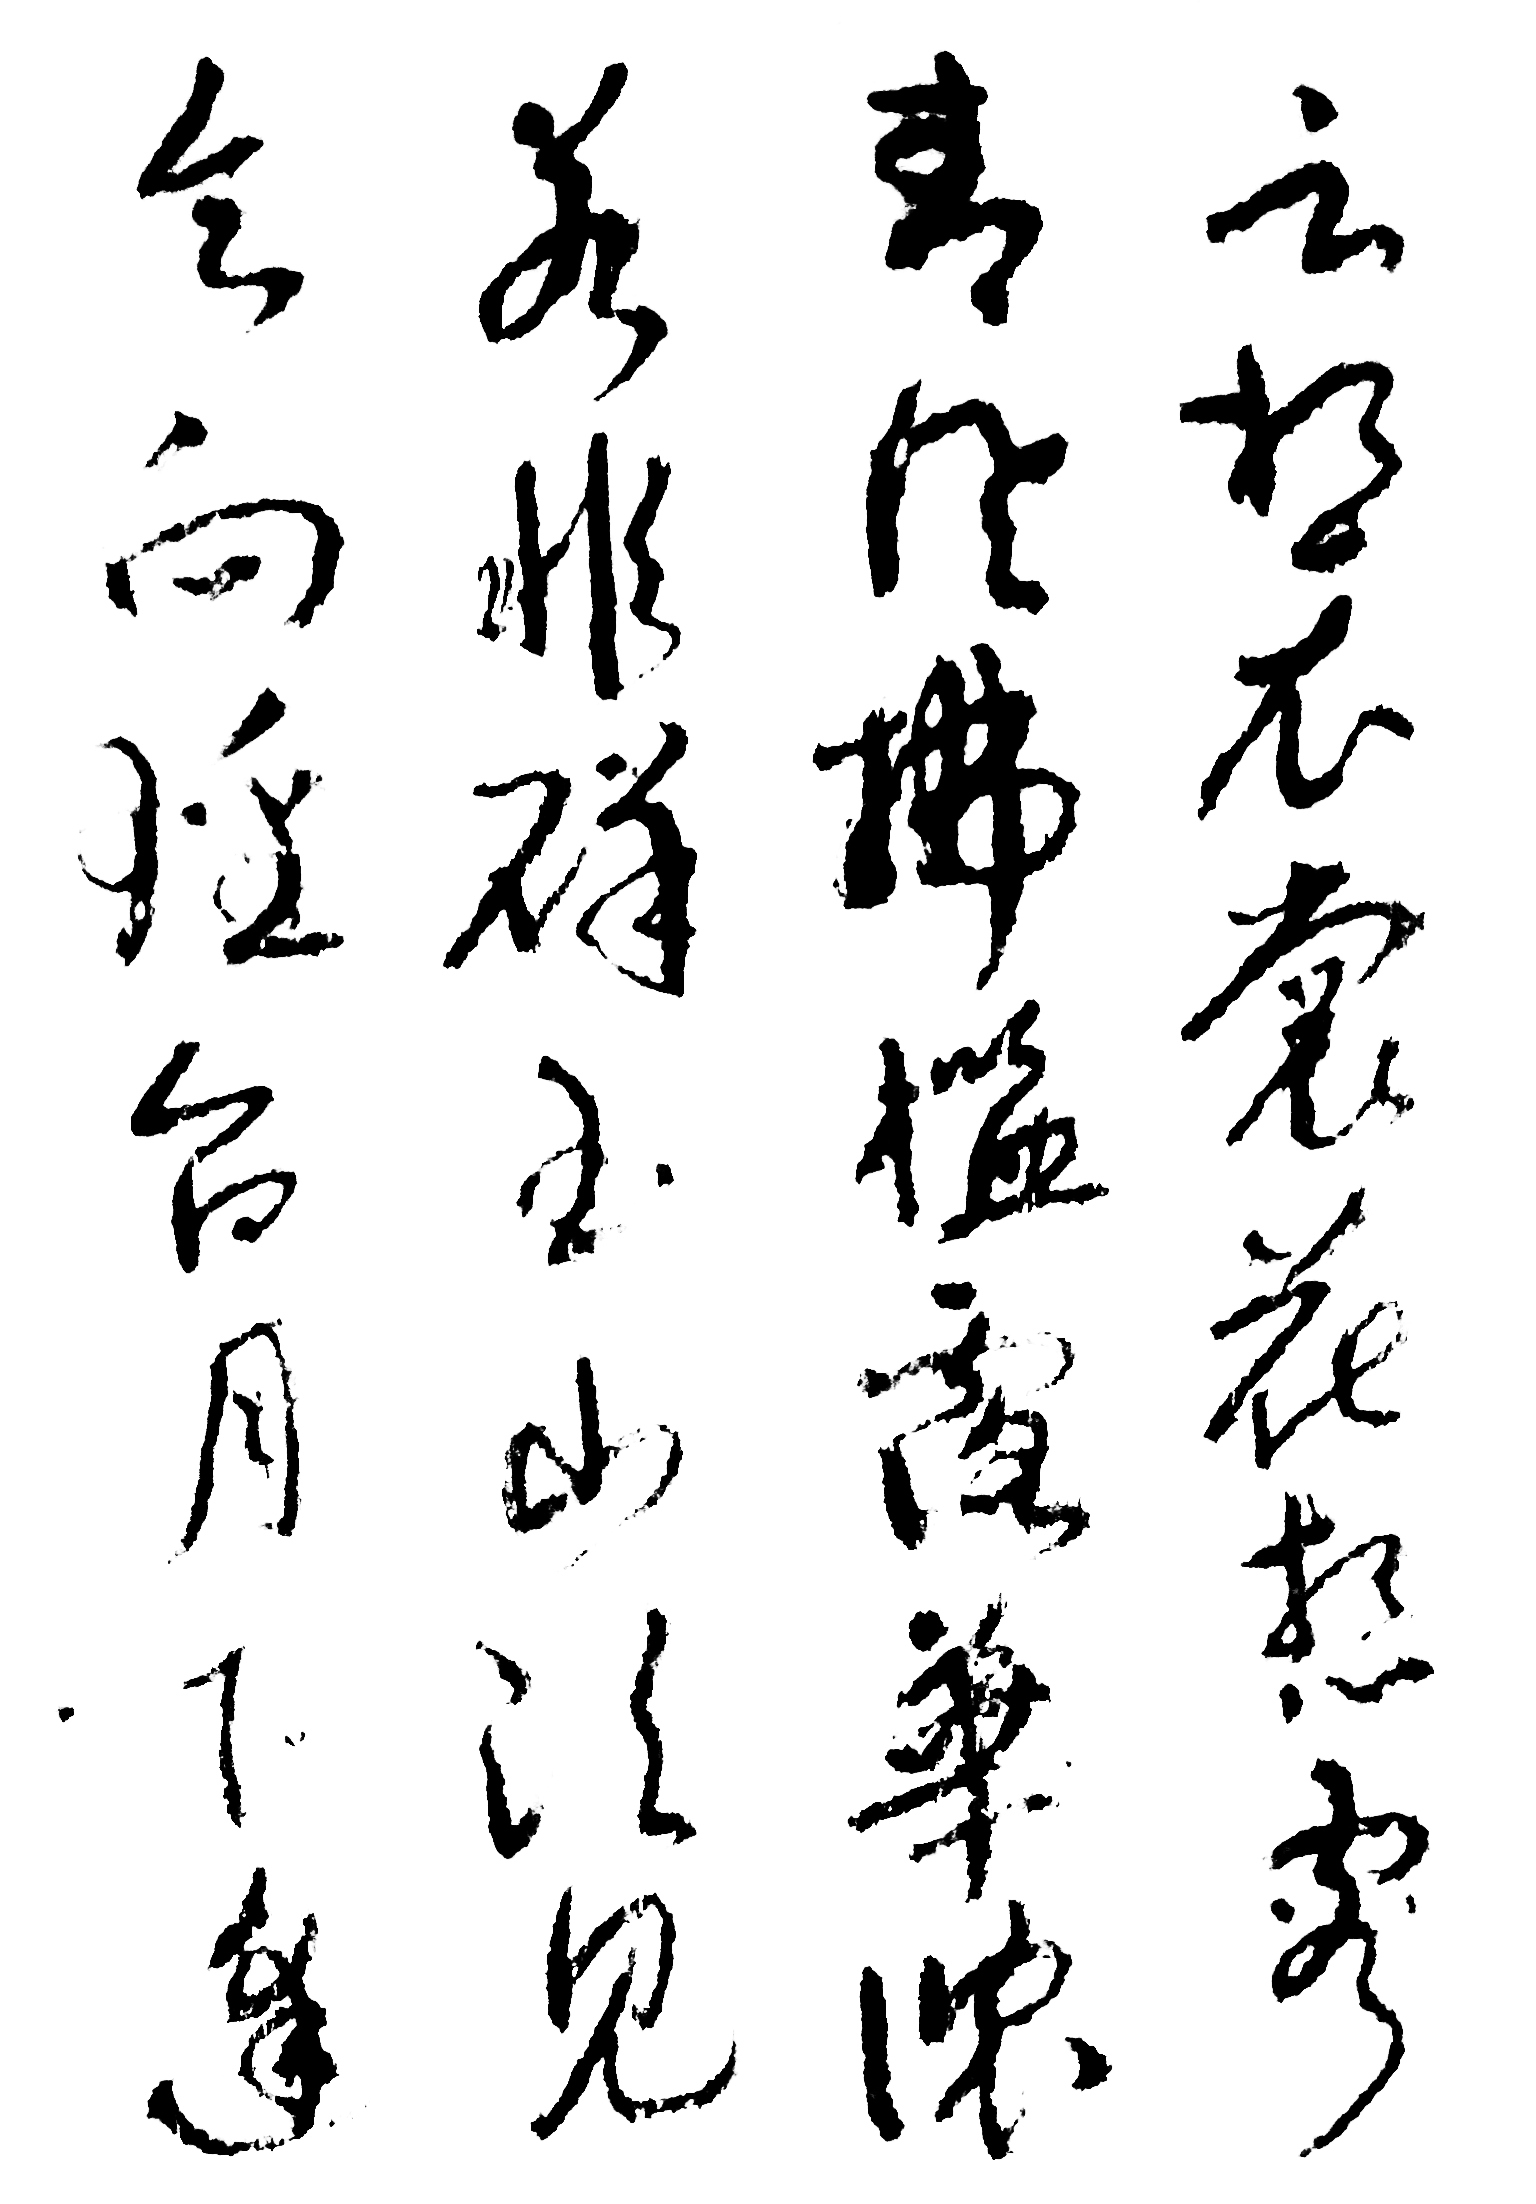 云想衣裳花想容
春风拂槛露華浓
若非群玉山头见
会向瑶台月下逢